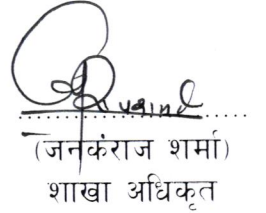 (जनकंराज शर्मा)
शाखा अधिकृत